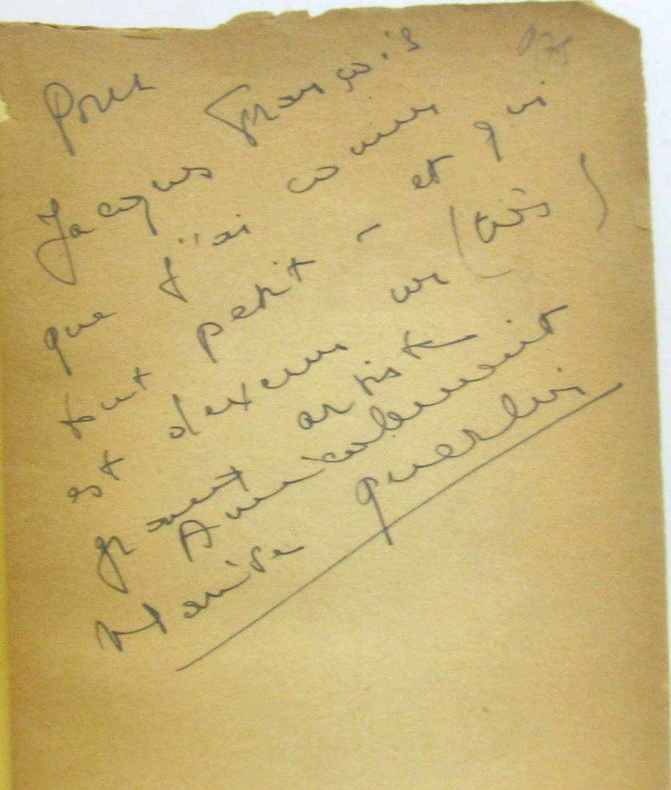 Pour
Jacques François
que j'ai connu
tout petit - et qui
est devenu un (très)
grand artiste
Amicalement
Marise Querlin